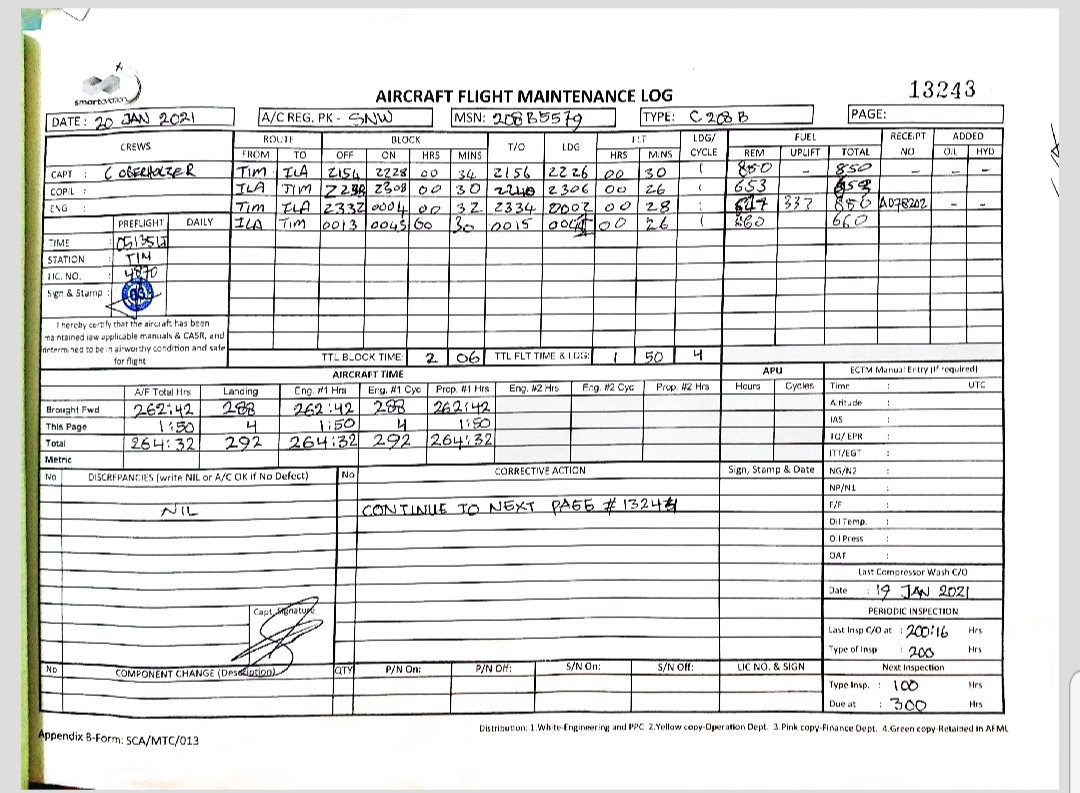 smartaviation
AIRCRAFT FLIGHT MAINTENANCE LOG
13243
DATE: 20 JAN 2021
A/C REG. PK - SNW
MSN: 208B5579
TYPE: C208B
PAGE:
CREWS ROUTE BLOCK T/O LDG FLT LDG/ CYCLE FUEL RECEIPT NO ADDED
FROM TO OFF ON HRS MINS HRS MINS REM UPLIFT TOTAL OIL HYD
CAPT : C OBERHOLZER TIM ILA 2154 2228 00 34 2156 2226 00 30 1 850 - 850 - - -
COPIL : ILA TIM 2238 2308 00 30 2240 2306 00 26 1 653
ENG : TIM ILA 2332 0004 00 32 2334 0002 00 28 1 337 850 AD78202 - -
PREFLIGHT DAILY ILA TIM 0013 0045 00 30 0015 00 26 1 660 660
TIME : 0515LT
STATION : TIM
LIC. NO. : 4870
Sign & Stamp :
I hereby certify that the aircraft has been
maintained iaw applicable manuals & CASR, and
determined to be in airworthy condition and safe
for flight
TTL BLOCK TIME: 2 06 TTL FLT TIME & LDG: 1 50 4
AIRCRAFT TIME
APU
ECTM Manual Entry (If required)
A/F Total Hrs Landing Eng. #1 Hrs Eng. #1 Cyc Prop. #1 Hrs Eng. #2 Hrs Eng. #2 Cyc Prop. #2 Hrs Hours Cycles Time : UTC
Brought Fwd 262:42 288 262:42 288 262:42
This Page 1:50 4 1:50 4 1:50
Total 264:32 292 264:32 292 264:32
Metric
Altitude :
IAS :
TQ/ EPR :
ITT/EGT :
NG/N2 :
NP/N1
F/F :
Oil Temp. :
Oil Press :
OAT :
No DISCREPANCIES (write NIL or A/C OK if No Defect) No CORRECTIVE ACTION Sign, Stamp & Date
NIL CONTINUE TO NEXT PAGE # 13244
Capt. Signature
Last Compressor Wash C/O
Date : 19 JAN 2021
PERIODIC INSPECTION
Last Insp C/O at : 200:16 Hrs
Type of Insp : 200 Hrs
Next Inspection
Type Insp. : 100 Hrs
Due at : 300 Hrs
No COMPONENT CHANGE (Description) QTY P/N On: P/N Off: S/N On: S/N Off: LIC NO. & SIGN
Distribution: 1.White-Engineering and PPC 2.Yellow copy-Operation Dept. 3.Pink copy-Finance Dept. 4.Green copy-Retained in AFML
Appendix B-Form: SCA/MTC/013